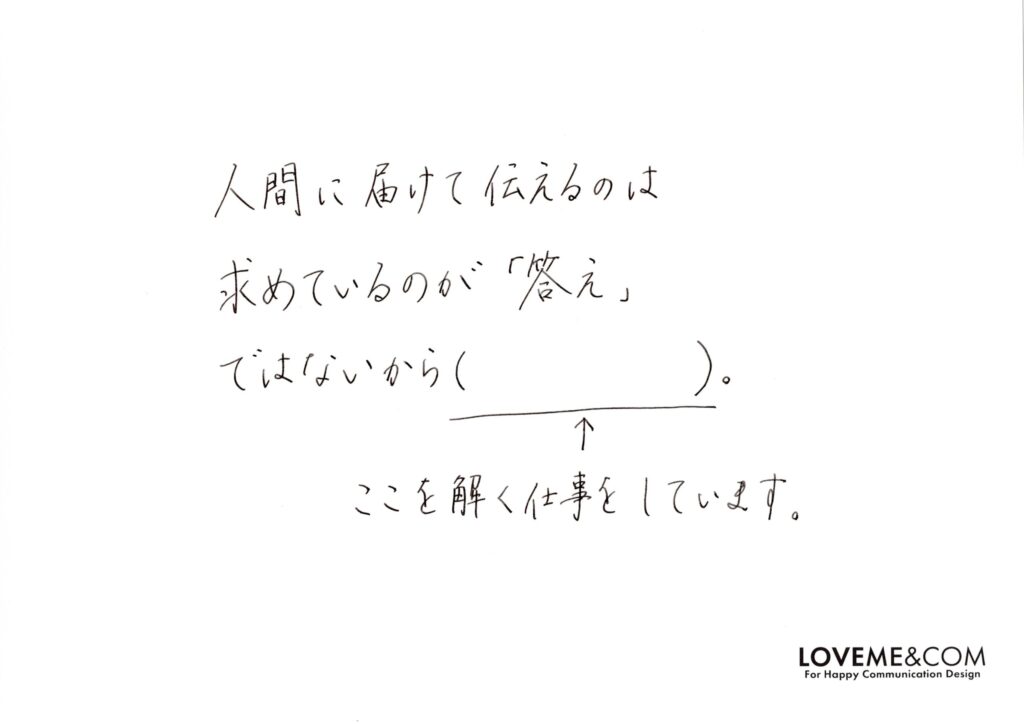 人間に届けて伝えるのは
求めているのが「答え」
ではないから(　　　　　　　)。
↑
ここを解く仕事をしています。
LOVEME&COM
For Happy Communication Design